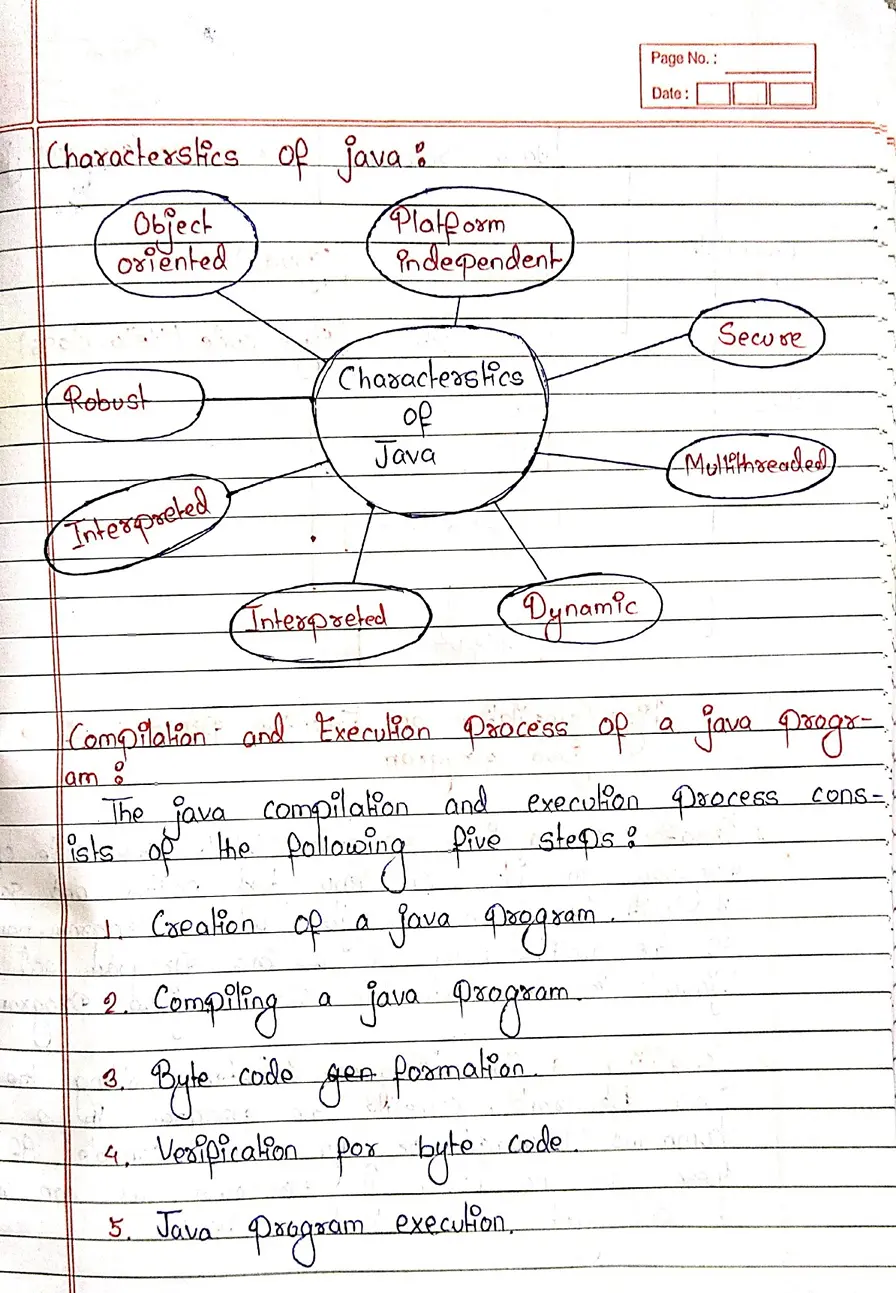 Page No. :
Date :
Characterstics of java :
Object
oriented
Platform
independent
Secure
Characterstics
of
Java
Robust
Multithreaded
Interpreted
Interpreted
Dynamic
Compilation and Execution process of a java progr-
am :
The java compilation and execution process cons-
ists of the following five steps :
1. Creation of a java program.
2. Compiling a java program.
3. Byte code gen formation.
4. Verification for byte code.
5. Java program execution.